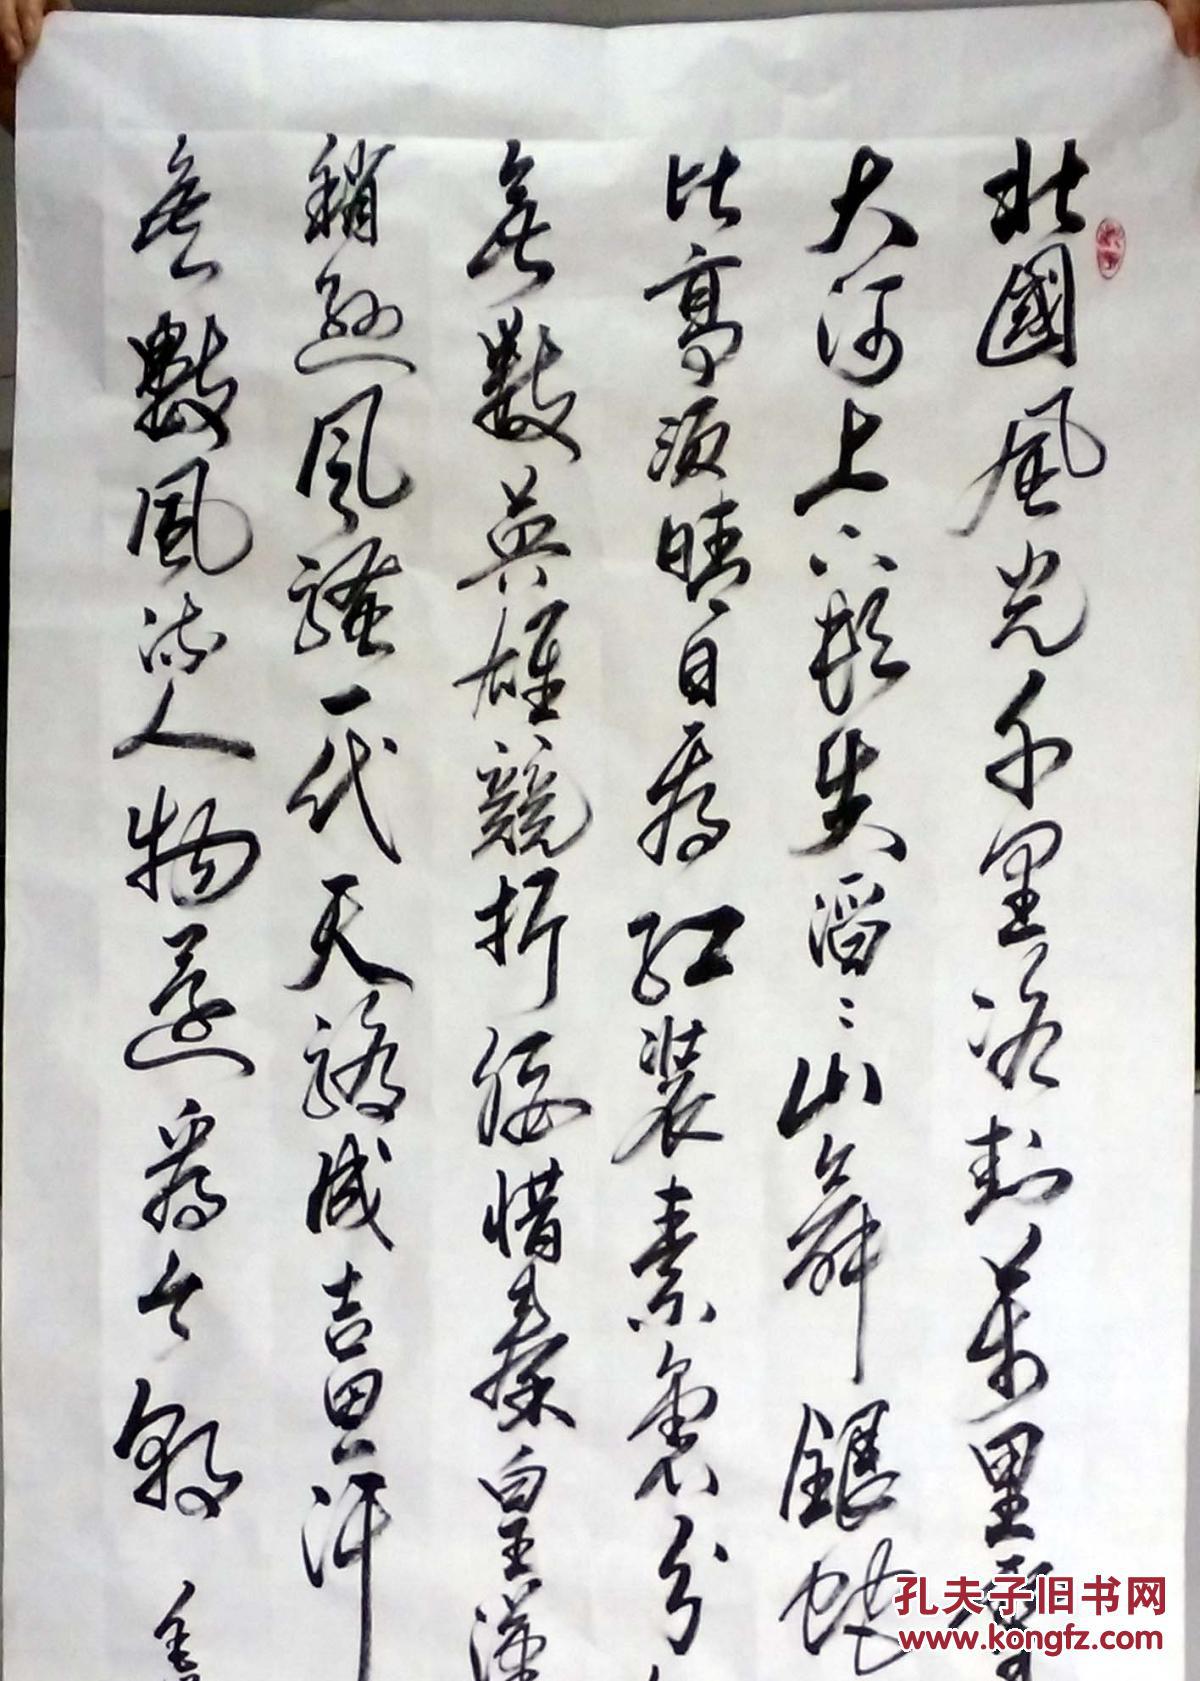 北國風光千里冰封萬里雪
大河上下頓失滔〻山舞銀蛇
比高須晴日看紅裝素裹分
無數英雄競折腰惜秦皇漢
稍遜風騷一代天驕成吉思汗
矣數風流人物還看今朝 毛
孔夫子旧书网
www.kongfz.com